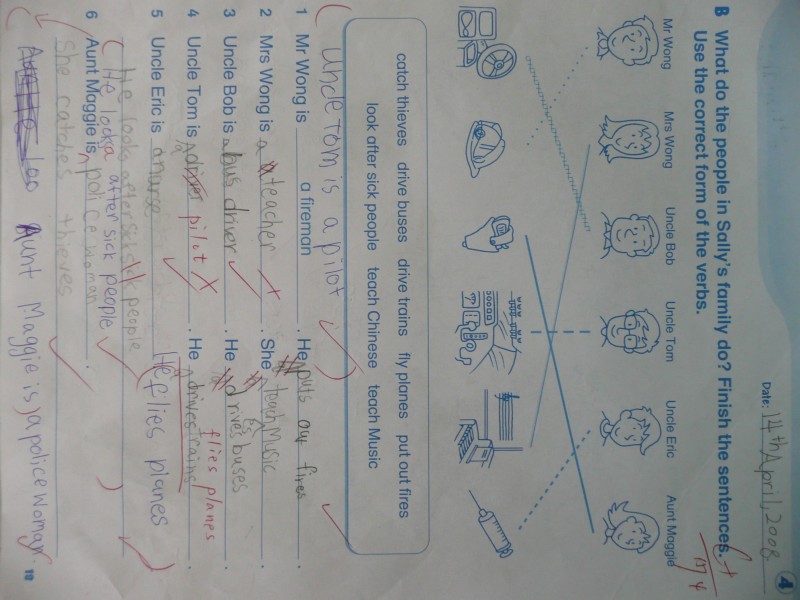 Date: 14th April, 2008
4
B What do the people in Sally's family do? Finish the sentences.
Use the correct form of the verbs.
Mr Wong Mrs Wong Uncle Bob Uncle Tom Uncle Eric Aunt Maggie
catch thieves drive buses drive trains fly planes put out fires
look after sick people teach Chinese teach Music
(Uncle Tom is a pilot)
1 Mr Wong is a fireman . He puts out fires .
2 Mrs Wong is a teacher . She teach Music .
3 Uncle Bob is a bus driver . He drives buses .
4 Uncle Tom is a pilot . He drives trains .
flies planes
5 Uncle Eric is a nurse (He flies planes)
He looks after sick people
(He looks after sick people)
6 Aunt Maggie is a policewoman .
She catches thieves
Aunt Maggie is a policewoman.
19